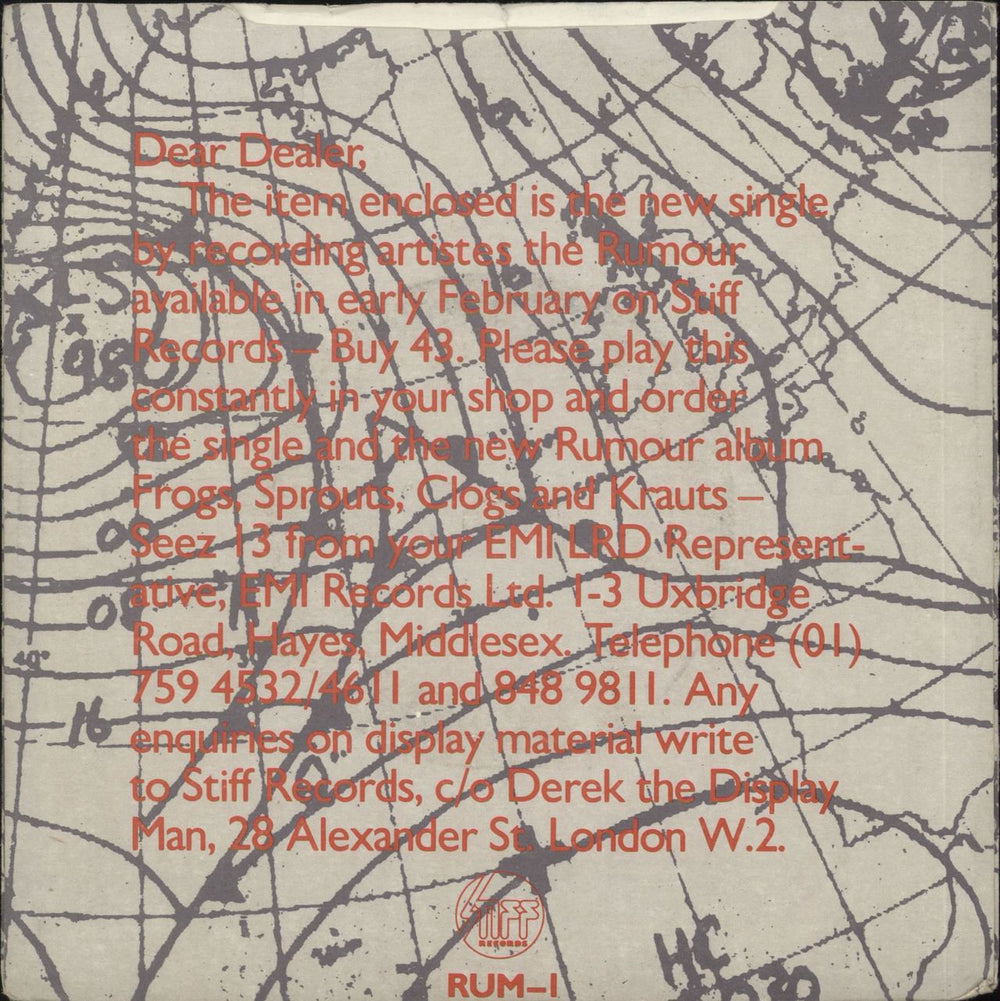 Dear Dealer,
The item enclosed is the new single
by recording artistes the Rumour
available in early February on Stiff
Records – Buy 43. Please play this
constantly in your shop and order
the single and the new Rumour album
Frogs, Sprouts, Clogs and Krauts –
Seez 13 from your EMI LRD Represent-
ative, EMI Records Ltd. 1-3 Uxbridge
Road, Hayes, Middlesex. Telephone (01)
759 4532/4611 and 848 9811. Any
enquiries on display material write
to Stiff Records, c/o Derek the Display
Man, 28 Alexander St. London W.2.
16
40°
STIFF
RECORDS
RUM–1